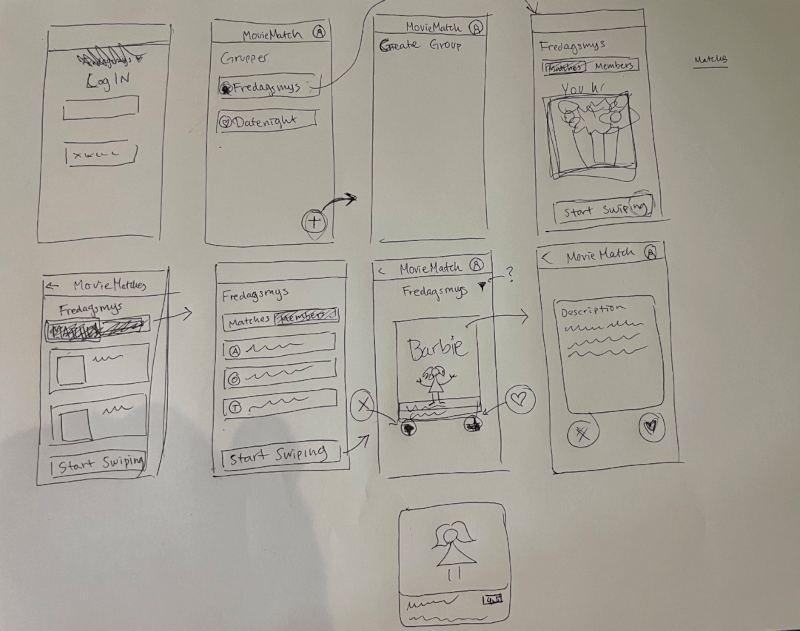 Log IN
MovieMatch A
Grupper
Fredagsmys
Datenight
+
MovieMatch A
Create Group
Fredagsmys
Matches Members
You hr
Start Swiping
Matches
← MovieMatches
Fredagsmys
Matches
Start Swiping
Fredagsmys
Matches Members
A
T
Start Swiping
< MovieMatch A
Fredagsmys ?
Barbie
X
< MovieMatch A
Description
X